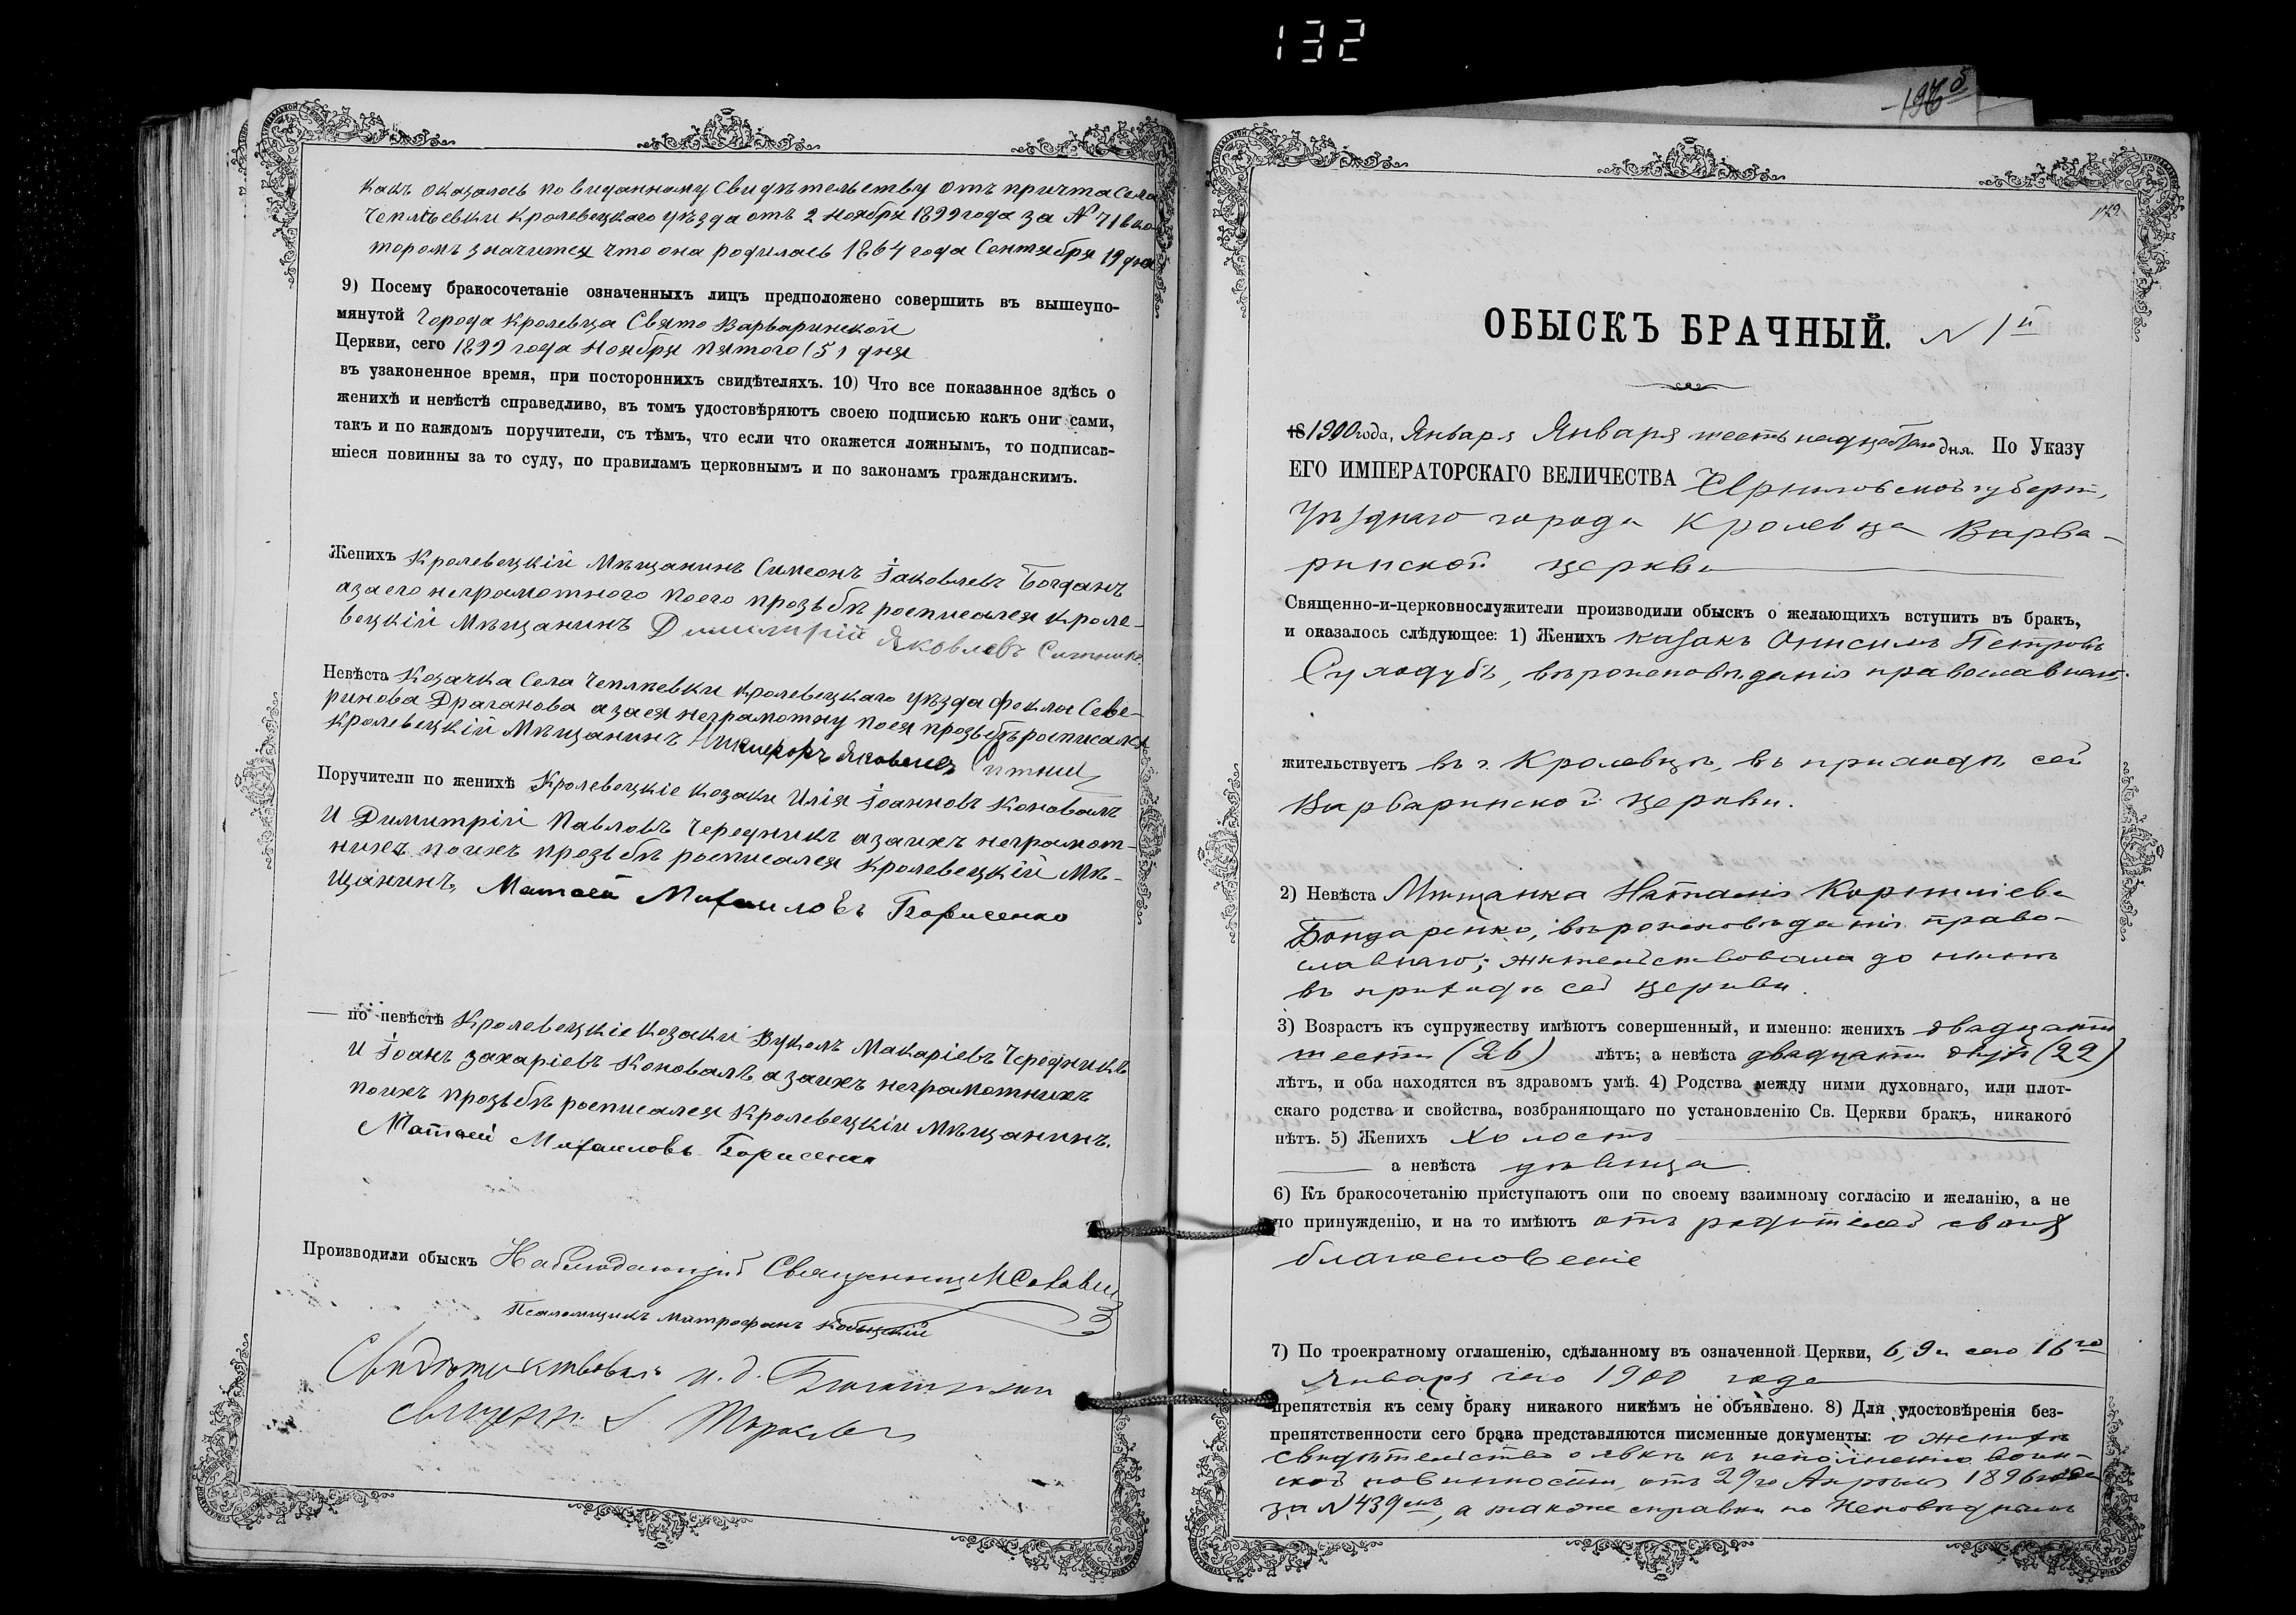 132
какъ оказалось по виданному Свидѣтельству отъ причта Села
Чепліевки Кролевецкаго уѣзда отъ 2 ноября 1899 года за № 71 вко-
торомъ значится что она родилась 1864 года Сентября 19 дня
9) Посему бракосочетаніе означенныхъ лицъ предположено совершить въ вышеупо-
мянутой Города Кролевца Свято Варваринской
Церкви, сего 1899 года Ноября пятого (5) дня
въ узаконенное время, при постороннихъ свидѣтеляхъ. 10) Что все показанное здѣсь о
женихѣ и невѣстѣ справедливо, въ томъ удостовѣряютъ своею подписью какъ они сами,
такъ и по каждомъ поручители, съ тѣмъ, что если что окажется ложнымъ, то подписав-
шіеся повинны за то суду, по правиламъ церковнымъ и по законамъ гражданскимъ.
Женихъ Кролевецкій Мѣщанинъ Симеонъ Іаковлевъ Богданъ
азаего неграмотного поего прозьбѣ росписался Кроле-
вецкій Мѣщанинъ Димитрій Яковлевъ
Невѣста Козачка Села Чеплѣевки Кролевецкаго уѣзда Фекла Севе-
ринова Драганова азаея неграмотну поея прозьбѣ росписался
Кролевецкій Мѣщанинъ Никифоръ Яковлевъ Ситник
Поручители по женихѣ Кролевецкіе козаки Илія Іоанновъ Коновалъ
И Димитрій Павловъ Чередникъ азаихъ неграмот-
нихъ поихъ прозьбѣ росписался Кролевецкій Мѣ-
щанинъ, Матвей Михаиловъ Борисенко
— по невѣстѣ Кролевецкіе Козаки Вуколъ Макаріевъ Чередникъ
И Іоанъ Захаріевъ Коновалъ азаихъ неграмотнихъ
поихъ прозьбѣ росписался Кролевецкій Мѣщанинъ.
Матвей Михаиловъ Борисенко
Производили обыскъ Наблюдающій Священникъ
Псаломщикъ Митрофанъ
Свидѣтельствовалъ и. д. Благочин
священ.
173
ОБЫСКЪ БРАЧНЫЙ. N 1й
18 1900 года, Января Января шестьнадцатаго дня. По Указу
ЕГО ИМПЕРАТОРСКАГО ВЕЛИЧЕСТВА Черниговской губерн,
Уѣзднаго города Кролевца Варва-
ринской церкви
Священно-и-церковнослужители производили обыскъ о желающихъ вступить въ бракъ,
и оказалось слѣдующее: 1) Женихъ казакъ Онисимъ Петровъ
Сулодубъ, вѣроисповѣданія православнаго.
жительствуетъ въ г. Кролевцѣ, въ приходѣ сей
Варваринской церкви.
2) Невѣста Мѣщанка Наталія Корниліева
Бондаренко, вѣроисповѣданія право-
славнаго; жительствовала до нынѣ
въ приходѣ сей церкви.
3) Возрастъ къ супружеству имѣютъ совершенный, и именно: женихъ двадцати
шести (26) лѣтъ; а невѣста двадцати двухъ (22)
лѣтъ, и оба находятся въ здравомъ умѣ. 4) Родства между ними духовнаго, или плот-
скаго родства и свойства, возбраняющаго по установленію Св. Церкви бракъ, никакого
нѣтъ. 5) Женихъ холостъ
а невѣста дѣвица
6) Къ бракосочетанію приступаютъ они по своему взаимному согласію и желанію, а не
по принужденію, и на то имѣютъ отъ родителей своихъ
благословеніе
7) По троекратному оглашенію, сдѣланному въ означенной Церкви, 6, 9 и сего 16го
Января сего 1900 года
препятствія къ сему браку никакого никѣмъ не объявлено. 8) Для удостовѣренія без-
препятственности сего брака представляются писменные документы: о женихѣ
свидѣтельство о явкѣ къ исполненію воин-
ской повинности, отъ 29го Апрѣля 1896 года
за N 439, а также справки по Исповѣднымъ